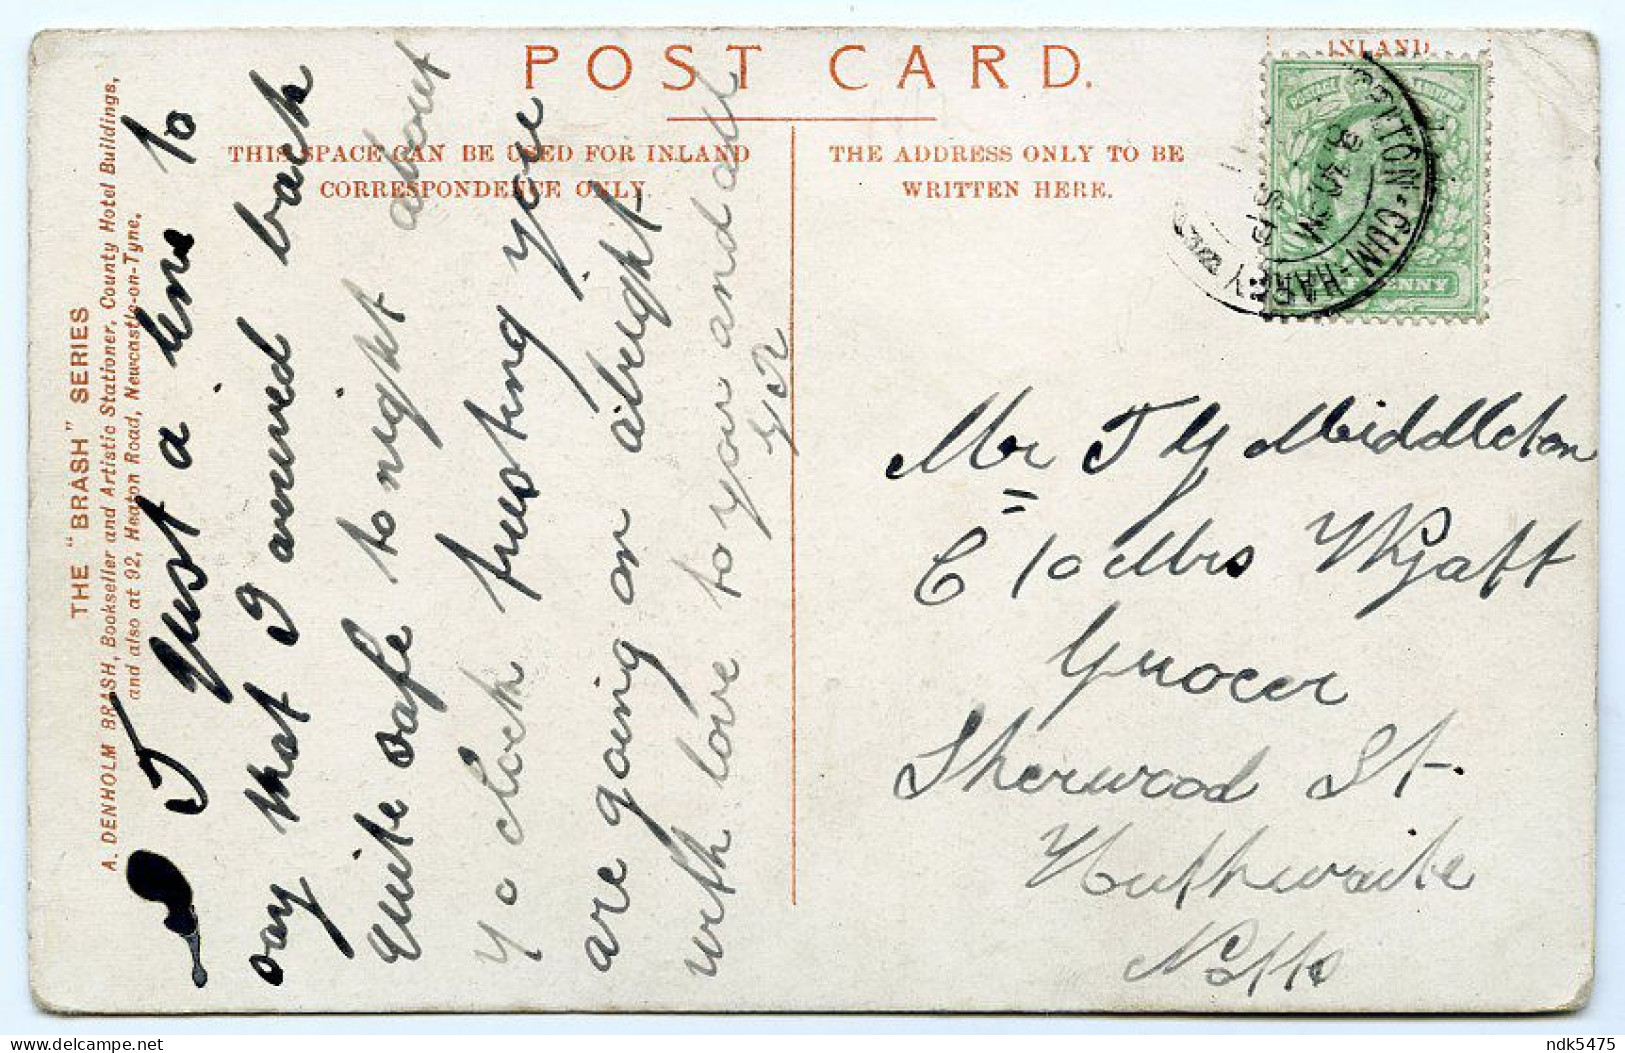 POST CARD.
INLAND
THIS SPACE CAN BE USED FOR INLAND
CORRESPONDENCE ONLY.
THE ADDRESS ONLY TO BE
WRITTEN HERE.
THE "BRASH" SERIES
A. DENHOLM BRASH, Bookseller and Artistic Stationer, County Hotel Buildings,
and also at 92, Heaton Road, Newcastle-on-Tyne.
T Just a line to
say that I arrived back
quite safe to night about
7 o clock trusting you
are going on alright
with love to you and all
Mr T Middleton
C/o Mrs Wyatt
Grocer
Sherwood St.
Huthwaite
Notts
POSTAGE
HALFPENNY
CUM-HARDY
ndk5475